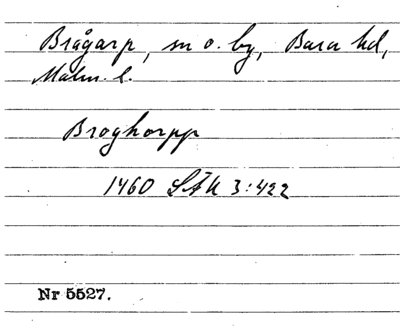 Brågarp, sn o. by, Bara hd,
Malm. l.
Broghorpp
1460 SÄU 3:422
Nr 5527.